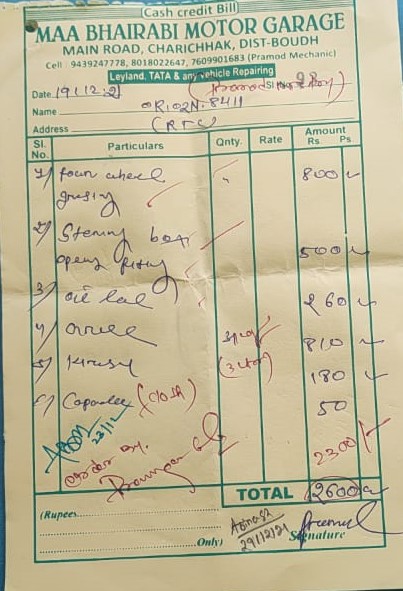 Cash credit Bill
MAA BHAIRABI MOTOR GARAGE
MAIN ROAD, CHARICHHAK, DIST-BOUDH
Cell : 9439247778, 8018022647, 7609901683 (Pramod Mechanic)
Leyland, TATA & any vehicle Repairing
Date 19/12/21 Sl No
Name OR02N.8411
Address (RTC)
Sl. No. Particulars Qnty. Rate Amount Rs Ps
1) foun wheel 800
grising
2) Stering box
openg fiting 500
3) oil 260
4) 810
5) 180
6) (cloth) 50
23/12
order by.
2300/-
TOTAL 2600
(Rupees
Abinash
Only) 29/12/21 Signature